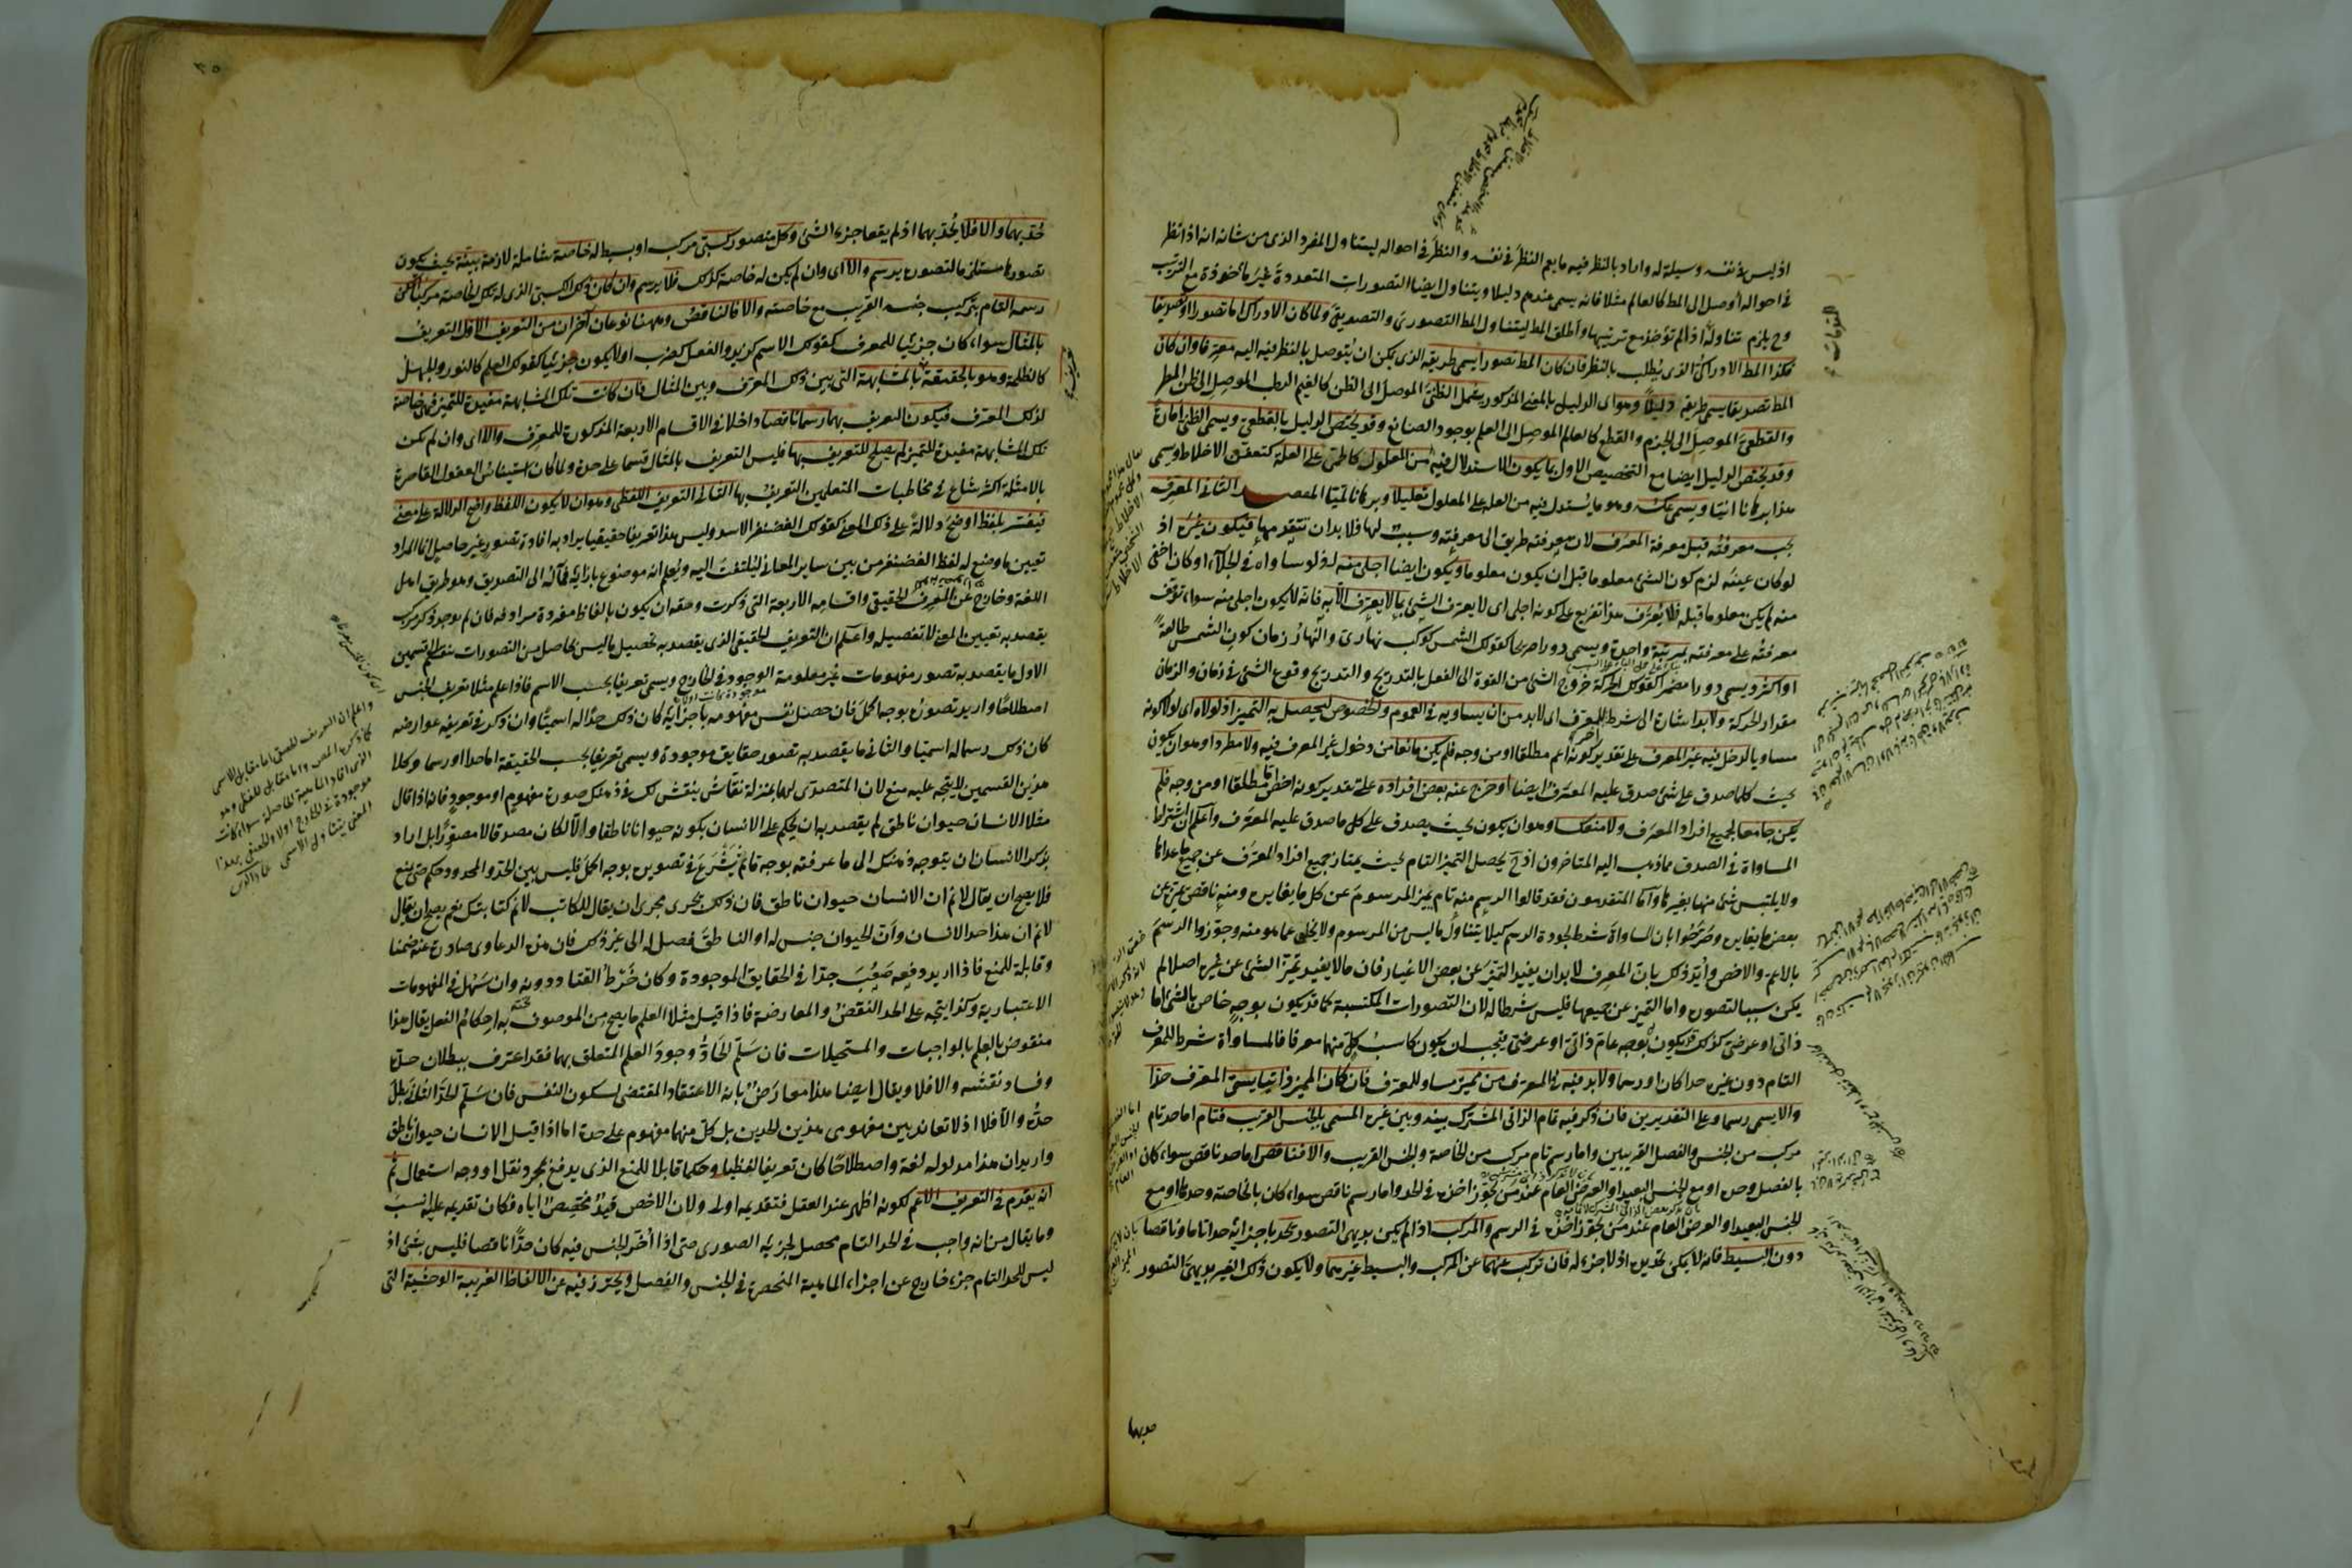 اذ ليس في نفسه وسيلة له واراد بالنظر فيه ما يعم النظر في نفسه والنظر في احواله ليتناول المفرد الذي من شانه انه اذا نظر
في احواله اوصل الى المط كالعالم مثلا فانه يسمى عندهم دليلا ويتناول ايضا التصورات المتعددة غير مأخوذة مع الترتيب
وح يلزم تناوله اذا لم تؤخذ مع ترتيبها واطلق المط ليتناول المط التصوري والتصديقي ولما كان الادراك اما تصورا او تصديقا
فكذا المط الادراكي الذي يطلب بالنظر فان كان المط تصورا يسمى طريقه الذي يمكن ان يتوصل بالنظر فيه اليه معرفا وان كان
المط تصديقا يسمى طريقه دليلا وهو اي الدليل بالمعنى المذكور يشمل الظني الموصل الى الظن كالغيم الرطب الموصل الى ظن المطر
والقطعي الموصل الى الجزم والقطع كالعالم الموصل الى العلم بوجود الصانع وقد يخص الدليل بالقطعي ويسمى الظني امارة
وقد يخص الدليل ايضا مع التخصيص الاول بما يكون الاستدلال فيه من المعلول كالحمى على العلة كتعفن الاخلاط ويسمى
هذا برهانا انيا ويسمى عكسه وهو ما يستدل فيه من العلة على المعلول تعليلا وبرهانا لميا المقصد الثاني المعرف
يجب معرفته قبل معرفة المعرف لان معرفته طريق الى معرفته وسبب لها فلا بد ان تتقدمها فيكون غيره اذ
لو كان عينه لزم كون الشئ معلوما قبل ان يكون معلوما ويكون ايضا اجلى منه اذ لو ساواه في الجلاء او كان اخفى
منه لم يكن معلوما قبله فلا يعرف هذا تفريع على كونه اجلى اي لا يعرف الشئ بما لا يعرف الا به فانه لا يكون اجلى منه سواء توقف
معرفته على معرفته بمرتبة واحدة ويسمى دورا صريحا كقولك الشمس كوكب نهاري والنهار زمان كون الشمس طالعة
او اكثر ويسمى دورا مضمرا كقولك الحركة خروج الشئ من القوة الى الفعل بالتدريج والتدريج وقوع الشئ في زمان والزمان
مقدار الحركة ولا بد اشارة الى شرط للمعرف اي لا بد من ان يساويه في العموم والخصوص ليحصل به التميز اذ لولاه اي لولا كونه
مساويا لدخل فيه غير المعرف على تقدير كونه اعم مطلقا او من وجه فلم يكن مانعا من دخول غير المعرف فيه ولا مطردا وهو ان يكون
بحيث كلما صدق على شئ صدق عليه المعرف ايضا او خرج عنه بعض افراده على تقدير كونه اخص اما مطلقا او من وجه فلم
يكن جامعا لجميع افراد المعرف ولا منعكسا وهو ان يكون بحيث يصدق على كل ما صدق عليه المعرف واعلم ان اشتراط
المساواة في الصدق مما ذهب اليه المتاخرون اذ ح يحصل التميز التام بحيث يمتاز جميع افراد المعرف عن جميع ما عداها
ولا يلتبس شئ منها بغيرها واما المتقدمون فقد قالوا الرسم منه تام يميز المرسوم عن كل ما يغايره ومنه ناقص يميزه عن
بعض ما يغايره وصرحوا بان المساواة شرط لجودة الرسم كيلا يتناول ما ليس من المرسوم ولا يخلى عما هو منه وجوزوا الرسم
بالاعم والاخص وايد ذلك بان المعرف لا بد ان يفيد التميز عن بعض الاغيار فان ما لا يفيد تميز الشئ عن غيره اصلا لم
يكن سببا لتصوره واما التميز عن جميعها فليس شرطا له لان التصورات المكتسبة كما قد يكون بوجه خاص بالشئ اما
ذاتي او عرضي كذلك قد يكون بوجه عام ذاتي او عرضي فيجب ان يكون كاسب كل منهما معرفا فالمساواة شرط للمعرف
التام دون غيره حدا كان او رسما ولا بد فيه في المعرف من مميز مساو للمعرف فان كان المميز ذاتيا يسمى المعرف حدا
والا يسمى رسما وعلى التقديرين فان ذكر فيه تمام الذاتي المشترك بينه وبين غيره المسمى بالجنس القريب فتام اما حد تام
مركب من الجنس والفصل القريبين واما رسم تام مركب من الخاصة والجنس القريب والا فناقص اما حد ناقص سواء كان
بالفصل وحده او مع الجنس البعيد او العرض العام عند من يجوز اخذه في الحد واما رسم ناقص سواء كان بالخاصة وحدها او مع
الجنس البعيد او العرض العام عند من يجوز اخذه في الرسم والمركب اذا لم يكن بديهي التصور يحد باجزائه حدا تاما او ناقصا
دون البسيط فانه لا يمكن تحديده اذ لا جزء له فان تركب عنهما عن المركب والبسيط غيرهما ولا يكون ذلك الغير بديهي التصور
حد بهما
٣٥
حد بهما والا فلا يحد بهما اذ لم يقعا جزء الشئ وكل متصور كسبي مركب او بسيط له خاصة شاملة لازمة بينة بحيث يكون
تصورها مستلزما لتصوره يرسم والا اي وان لم يكن له خاصة كذلك فلا يرسم وان كان ذلك الكسبي الذي له تلك الخاصة مركبا امكن
رسمه التام بتركيب جنسه القريب مع خاصته والا فالناقص وههنا نوعان آخران من التعريف الاول التعريف
بالمثال سواء كان جزئيا للمعرف كقولك الاسم كزيد والفعل كضرب او لا يكون جزئيا كقولك العلم كالنور والجهل
كالظلمة وهو بالحقيقة بالمشابهة التي بين ذلك المعرف وبين المثال فان كانت تلك المشابهة مفيدة للتميز فهي خاصة
لذلك المعرف فيكون التعريف بهما رسما ناقصا داخلا في الاقسام الاربعة المذكورة للمعرف والا اي وان لم تكن
تلك المشابهة مفيدة للتميز لم يصلح للتعريف بها فليس التعريف بالمثال قسما على حدة ولما كان استيناس العقول القاصرة
بالامثلة اكثر شاع في مخاطبات المتعلمين التعريف بها الثاني التعريف اللفظي وهو ان لا يكون اللفظ واضح الدلالة على معنى
فيفسر بلفظ اوضح دلالة على ذلك المعنى كقولك الغضنفر الاسد وليس هذا تعريفا حقيقيا يراد به افادة تصور غير حاصل انما المراد
تعيين ما وضع له لفظ الغضنفر من بين ساير المعاني ليلتفت اليه ويعلم انه موضوع بازائه فمآله الى التصديق وهو طريق اهل
اللغة وخارج عن المعرف الحقيقي واقسامه الاربعة التي ذكرت وحقه ان يكون بالفاظ مفردة مرادفة فان لم يوجد ذكر مركب
يقصد به تعيين المعنى لا تفصيله واعلم ان التعريف الحقيقي الذي يقصد به تحصيل ما ليس بحاصل من التصورات ينقسم الى قسمين
الاول ما يقصد به تصور مفهومات غير معلومة الوجود في الخارج ويسمى تعريفا بحسب الاسم فاذا علم مثلا تعريف الجنس
اصطلاحا واريد تصوره بوجه اكمل فان حصل نفس مفهومه باجزائه كان ذلك حدا له اسميا وان ذكر في تعريفه عوارضه
كان ذلك رسما له اسميا والثاني ما يقصد به تصور حقايق موجودة ويسمى تعريفا بحسب الحقيقة اما حدا او رسما وكلا
هذين القسمين لا يتجه عليه منع لان المتصدي لهما بمنزلة نقاش ينقش لك في ذهنك صورة مفهوم او موجود فانه اذا قال
مثلا الانسان حيوان ناطق لم يقصد به ان يحكم على الانسان بكونه حيوانا ناطقا والا لكان مصدقا لا مصورا بل اراد
بذكر الانسان ان يتوجه ذهنك الى ما عرفته بوجه ما ثم شرع في تصويره بوجه اكمل فليس بين الحد والمحدود حكم حتى يمنع
فلا يصح ان يقال لا نم ان الانسان حيوان ناطق فان ذلك يجري مجرى ان يقال للكاتب لا نم كتابتك نعم يصح ان يقال
لا نم ان هذا حد الانسان وان الحيوان جنس له او الناطق فصل له الى غير ذلك فان هذه الدعاوى صادرة عنه ضمنا
وقابلة للمنع فاذا اريد دفعه صعب جدا في الحقايق الموجودة وكان خرط القتاد دونه وان سهل في المفهومات
الاعتبارية وكذا يتجه على الحد النقض والمعارضة فاذا قيل مثلا العلم ما يصح من الموصوف به احكام الفعل يقال هذا
منقوض بالعلم بالواجبات والمستحيلات فان سلم الحاد وجود العلم المتعلق بهما فقد اعترف ببطلان حده
وفساد نقشه والا فلا ويقال ايضا هذا معارض بانه الاعتقاد المقتضي لسكون النفس فان سلم الحد الثاني بطل
حده والا فلا اذ لا تعاند بين مفهومي هذين الحدين بل كل منهما مفهوم على حدة اما اذا قيل الانسان حيوان ناطق
واريد ان هذا مدلوله لغة واصطلاحا كان تعريفا لفظيا وحكما قابلا للمنع الذي يدفع بمجرد نقل او وجه استعمال ثم
انه يقدم في التعريف الاعم لكونه اظهر عند العقل فتقديمه اولى ولان الاخص قيد مخصص اياه فكان تقديمه عليه انسب
وما يقال من انه واجب في الحد التام محصل لجزئه الصوري حتى اذا اخر الجنس فيه كان حدا ناقصا فليس بشئ اذ
ليس للحد التام جزء خارج عن اجزاء الماهية المنحصرة في الجنس والفصل ويحترز فيه عن الالفاظ الغريبة الوحشية التي